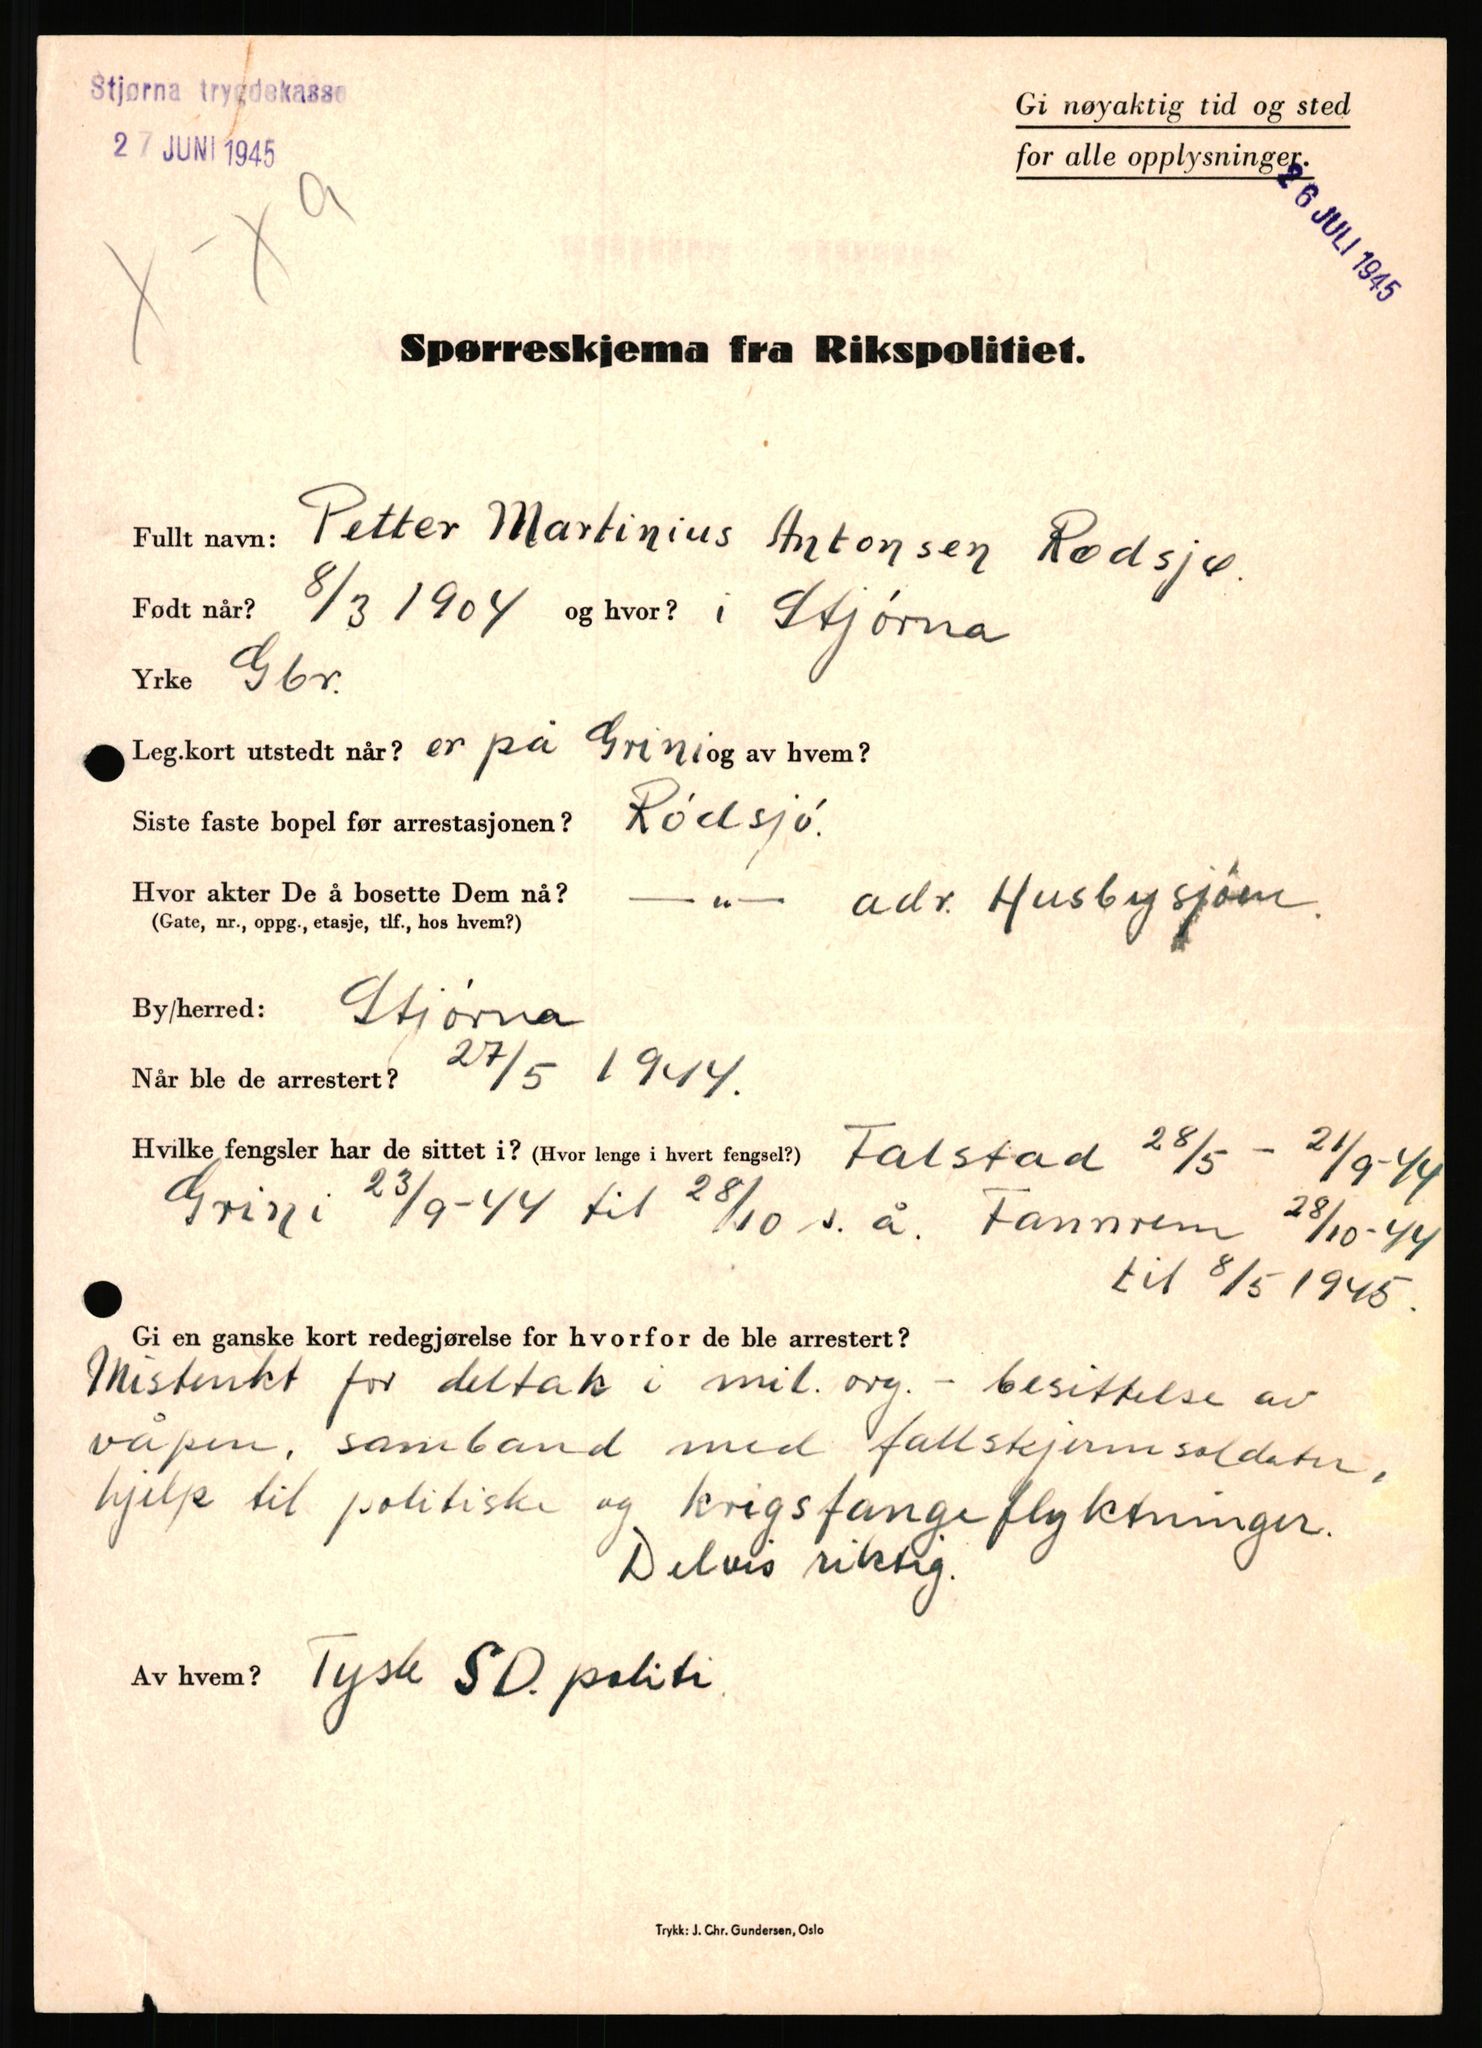 Stjørna trygdekasse
27 JUNI 1945
Gi nøyaktig tid og sted
for alle opplysninger.
26 JULI 1945
x - x a
Spørreskjema fra Rikspolitiet.
Fullt navn: Petter Martinius Antonsen Rødsjø.
Født når? 8/3 1904 og hvor? i Stjórna
Yrke Gbr.
Leg.kort utstedt når? er på Grini og av hvem?
Siste faste bopel før arrestasjonen? Ródsjó.
Hvor akter De å bosette Dem nå? — " — adr. Husbysjøen.
(Gate, nr., oppg., etasje, tlf., hos hvem?)
By/herred: Stjórna
Når ble de arrestert? 27/5 1944.
Hvilke fengsler har de sittet i? (Hvor lenge i hvert fengsel?) Falstad 28/5 - 21/9-44
Grini 23/9-44 til 28/10 s. å. Fannrem 28/10-44
til 8/5 1945.
Gi en ganske kort redegjørelse for hvorfor de ble arrestert?
Mistenkt for deltak i mil. org. - besittelse av
våpen, samband med fallskjermsoldater,
hjelp til politiske og krigsfangeflyktninger.
Delvis riktig.
Av hvem? Tysk SD. politi
Trykk: J. Chr. Gundersen, Oslo